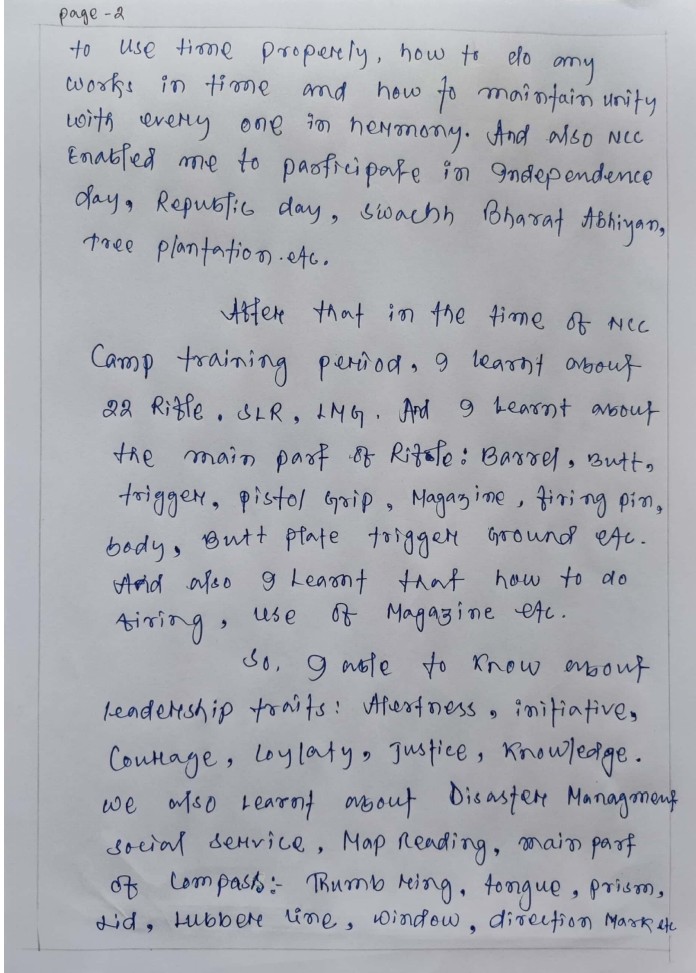 page -2
to use time properly, how to do any
works in time and how to maintain unity
with every one in hermony. And also NCC
Enabled me to participate in Independence
day, Republic day, Swachh Bharat Abhiyan,
tree plantation.etc.
After that in the time of NCC
Camp training period, I learnt about
22 Rifle, SLR, LMG. And I Learnt about
the main part of Rifle: Barrel, Butt,
trigger, pistol Grip, Magazine, firing pin,
body, Butt plate trigger Ground etc.
And also I Learnt that how to do
firing, use of Magazine etc.
So, I able to Know about
leadership traits: Alertness, initiative,
Courage, Loylaty, Justice, Knowledge.
we also Learnt about Disaster Managment
social service, Map Reading, main part
of Compass:- Thumb ring, tongue, prism,
Lid, Lubber line, window, direction Mark etc